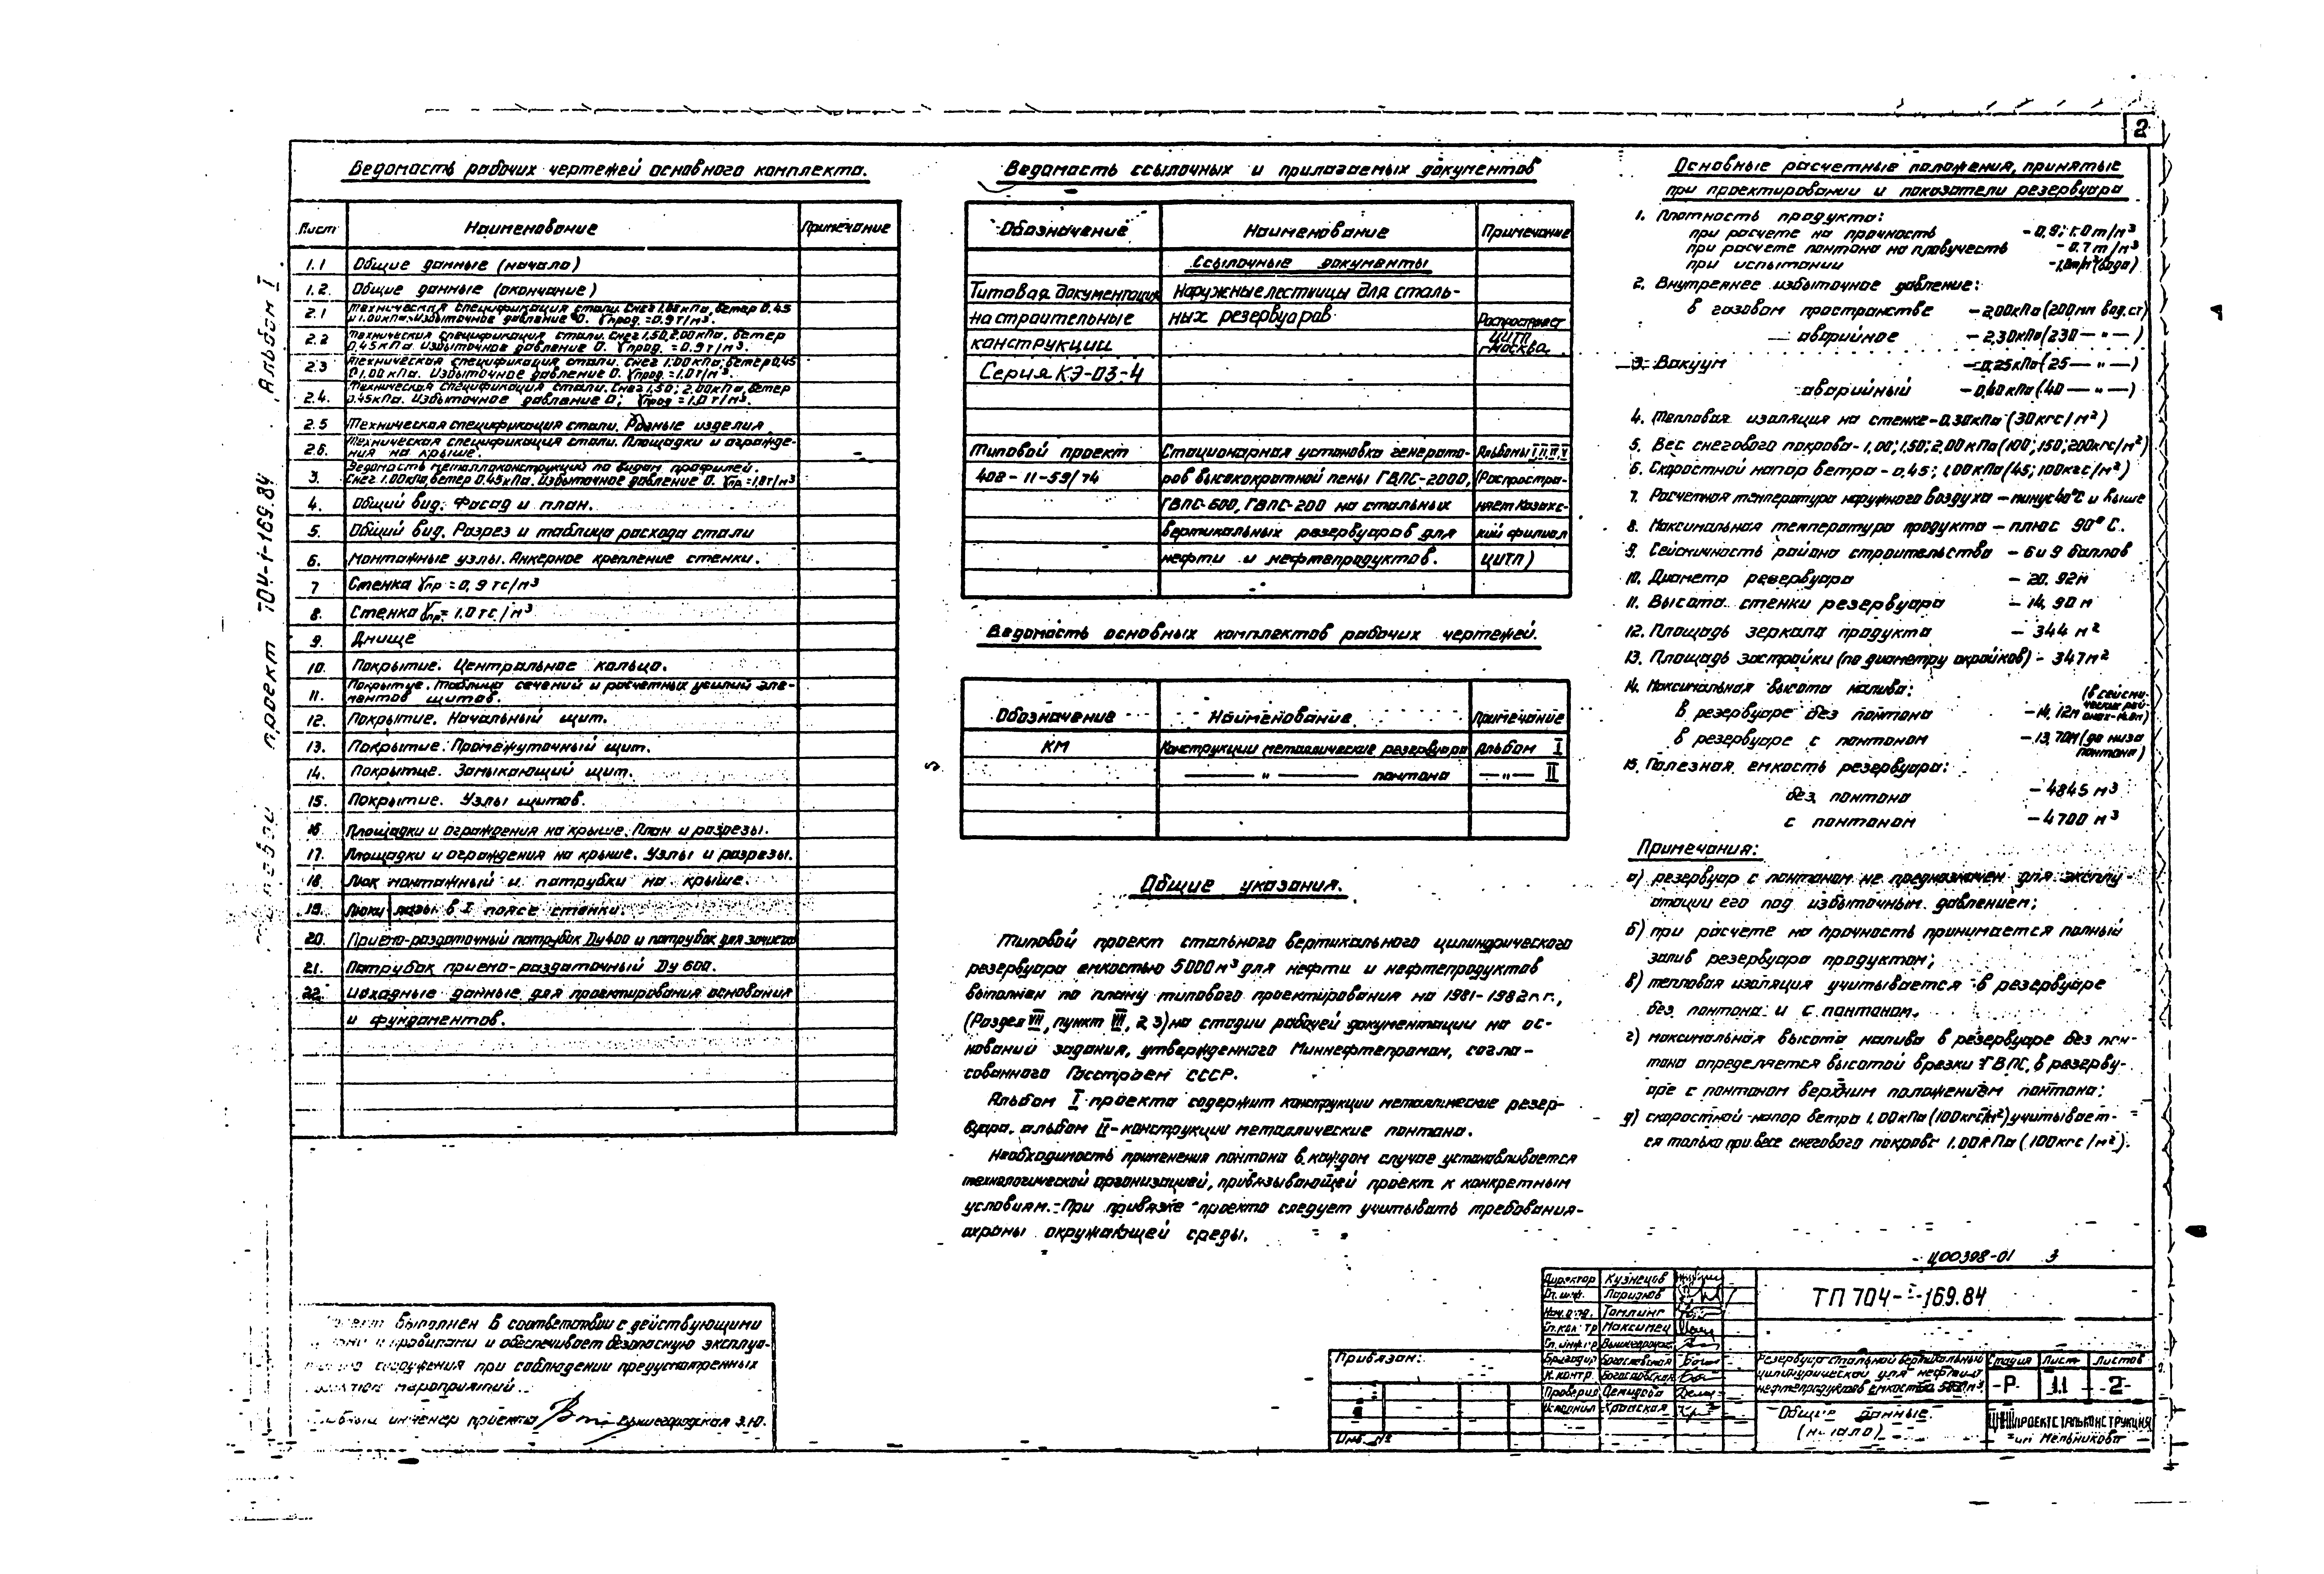 2
Альбом I
проект 704-1-169.84
Ведомость рабочих чертежей основного комплекта.
Лист Наименование Примечание
1.1 Общие данные (начало)
1.2. Общие данные (окончание)
2.1 Техническая спецификация стали. Снег 1.00 кПа, ветер 0.45
и 1.00 кПа. Избыточное давление 0. γпрод. = 0.9 т/м³.
2.2 Техническая спецификация стали. Снег 1.50, 2.00 кПа, ветер
0,45 кПа. Избыточное давление 0. γпрод. = 0.9 т/м³.
2.3 Техническая спецификация стали. Снег 1.00 кПа, ветер 0,45
и 1.00 кПа. Избыточное давление 0. γпрод = 1.0 т/м³.
2.4. Техническая спецификация стали. Снег 1,50; 2.00 кПа, ветер
0.45 кПа. Избыточное давление 0; γпрод = 1.0 т/м³.
2.5 Техническая спецификация стали. Разные изделия
2.6. Техническая спецификация стали. Площадки и огражде-
ния на крыше.
3. Ведомость металлоконструкций по видам профилей.
Снег 1.00 кПа, ветер 0.45 кПа. Избыточное давление 0. γпр =
4. Общий вид. Фасад и план.
5. Общий вид. Разрез и таблица расхода стали
6. Монтажные узлы. Анкерное крепление стенки.
7 Стенка γпр = 0,9 тс/м³
8. Стенка γпр. = 1.0 тс/м³
9. Днище
10. Покрытие. Центральное кольцо.
11. Покрытие. Таблица сечений и расчетных усилий эле-
ментов щитов.
12. Покрытие. Начальный щит.
13. Покрытие. Промежуточный щит.
14. Покрытие. Замыкающий щит.
15. Покрытие. Узлы щитов.
16 Площадки и ограждения на крыше. План и разрезы.
17. Площадки и ограждения на крыше. Узлы и разрезы.
18. Люк монтажный и патрубки на крыше.
19. Люки лазы в I поясе стенки.
20. Приемо-раздаточный патрубок Ду 400 и патрубок для зачистки
21. Патрубок приемо-раздаточный Ду 600.
22. Исходные данные для проектирования основания
и фундаментов.
Ведомость ссылочных и прилагаемых документов
Обозначение Наименование Примечание
Ссылочные документы
Типовая документация Наружные лестницы для сталь-
на строительные ных резервуаров Распростран.
конструкции ЦИТП
г. Москва
Серия КЭ-03-4
Типовой проект Стационарная установка генерато- Альбомы I, II, III, V
402-11-59/74 ров высокократной пены ГВПС-2000, (Распростра-
ГВПС-600, ГВПС-200 на стальных няет Казахс-
вертикальных резервуаров для кий филиал
нефти и нефтепродуктов. ЦИТП)
Ведомость основных комплектов рабочих чертежей.
Обозначение Наименование Примечание
КМ Конструкции металлические резервуара Альбом I
— " — понтона — " — II
Общие указания.
Типовой проект стального вертикального цилиндрического
резервуара емкостью 5000 м³ для нефти и нефтепродуктов
выполнен по плану типового проектирования на 1981-1982 г.г.,
(Раздел VII, пункт VII, 2.3) на стадии рабочей документации на ос-
новании задания, утвержденного Миннефтепромом, согла-
сованного Госстроем СССР.
Альбом I проекта содержит конструкции металлические резер-
вуара, альбом II - конструкции металлические понтона.
Необходимость применения понтона в каждом случае устанавливается
технологической организацией, привязывающей проект к конкретным
условиям. При привязке проекта следует учитывать требования
охраны окружающей среды.
Основные расчетные положения, принятые
при проектировании и показатели резервуара
1. Плотность продукта:
при расчете на прочность - 0,9; 1.0 т/м³
при расчете понтона на плавучесть - 0.7 т/м³
при испытании - 1,0 т/м³ (вода)
2. Внутреннее избыточное давление:
в газовом пространстве - 2,00 кПа (200 мм вод. ст)
аварийное - 2,30 кПа (230 — " —)
3. Вакуум - 0,25 кПа (25 — " —)
аварийный - 0,40 кПа (40 — " —)
4. Тепловая изоляция на стенке - 0.30 кПа (30 кгс/м²)
5. Вес снегового покрова - 1,00; 1,50; 2,00 кПа (100; 150; 200 кгс/м²)
6. Скоростной напор ветра - 0,45; 1,00 кПа (45; 100 кгс/м²)
7. Расчетная температура наружного воздуха - минус 40°С и выше
8. Максимальная температура продукта - плюс 90°С.
9. Сейсмичность района строительства - 6 и 9 баллов
10. Диаметр резервуара - 20.92 м
11. Высота стенки резервуара - 14,90 м
12. Площадь зеркала продукта - 344 м²
13. Площадь застройки (по диаметру окрайков) - 347 м²
14. Максимальная высота налива:
в резервуаре без понтона - 14,12 м (в сейсми-
ческих рай-
онах -
в резервуаре с понтоном - 13,70 м (до низа
понтона)
15. Полезная емкость резервуара:
без понтона - 4845 м³
с понтоном - 4700 м³
Примечания:
а) резервуар с понтоном не предназначен для эксплу-
атации его под избыточным давлением;
б) при расчете на прочность принимается полный
залив резервуара продуктом;
в) тепловая изоляция учитывается в резервуаре
без понтона и с понтоном.
г) максимальная высота налива в резервуаре без пон-
тона определяется высотой врезки ГВПС, в резерву-
аре с понтоном верхним положением понтона;
д) скоростной напор ветра 1,00 кПа (100 кгс/м²) учитывает-
ся только при весе снегового покрова 1.00 кПа (100 кгс/м²).
выполнен в соответствии с действующими
и правилами и обеспечивает безопасную эксплуа-
сооружения при соблюдении предусмотренных
мероприятий.
инженер проекта Вышегородская Э.Ю.
Ц00398-01 3
Директор Кузнецов
Гл. инж. Ларионов
Нач. отд. Томлинг
Гл. констр Максимец
Гл. инж. пр
Бригадир Богославская
Н. контр. Богославская
Проверил Демидова
Исполнил
ТП 704-I-169.84
Резервуар стальной вертикальный
цилиндрический для нефти и
нефтепродуктов емкостью 5000 м³
Стадия Лист Листов
Р 1.1 2
Общие данные.
(начало)
ЦНИИПРОЕКТСТАЛЬКОНСТРУКЦИЯ
им Мельникова
Привязан:
Инв. №